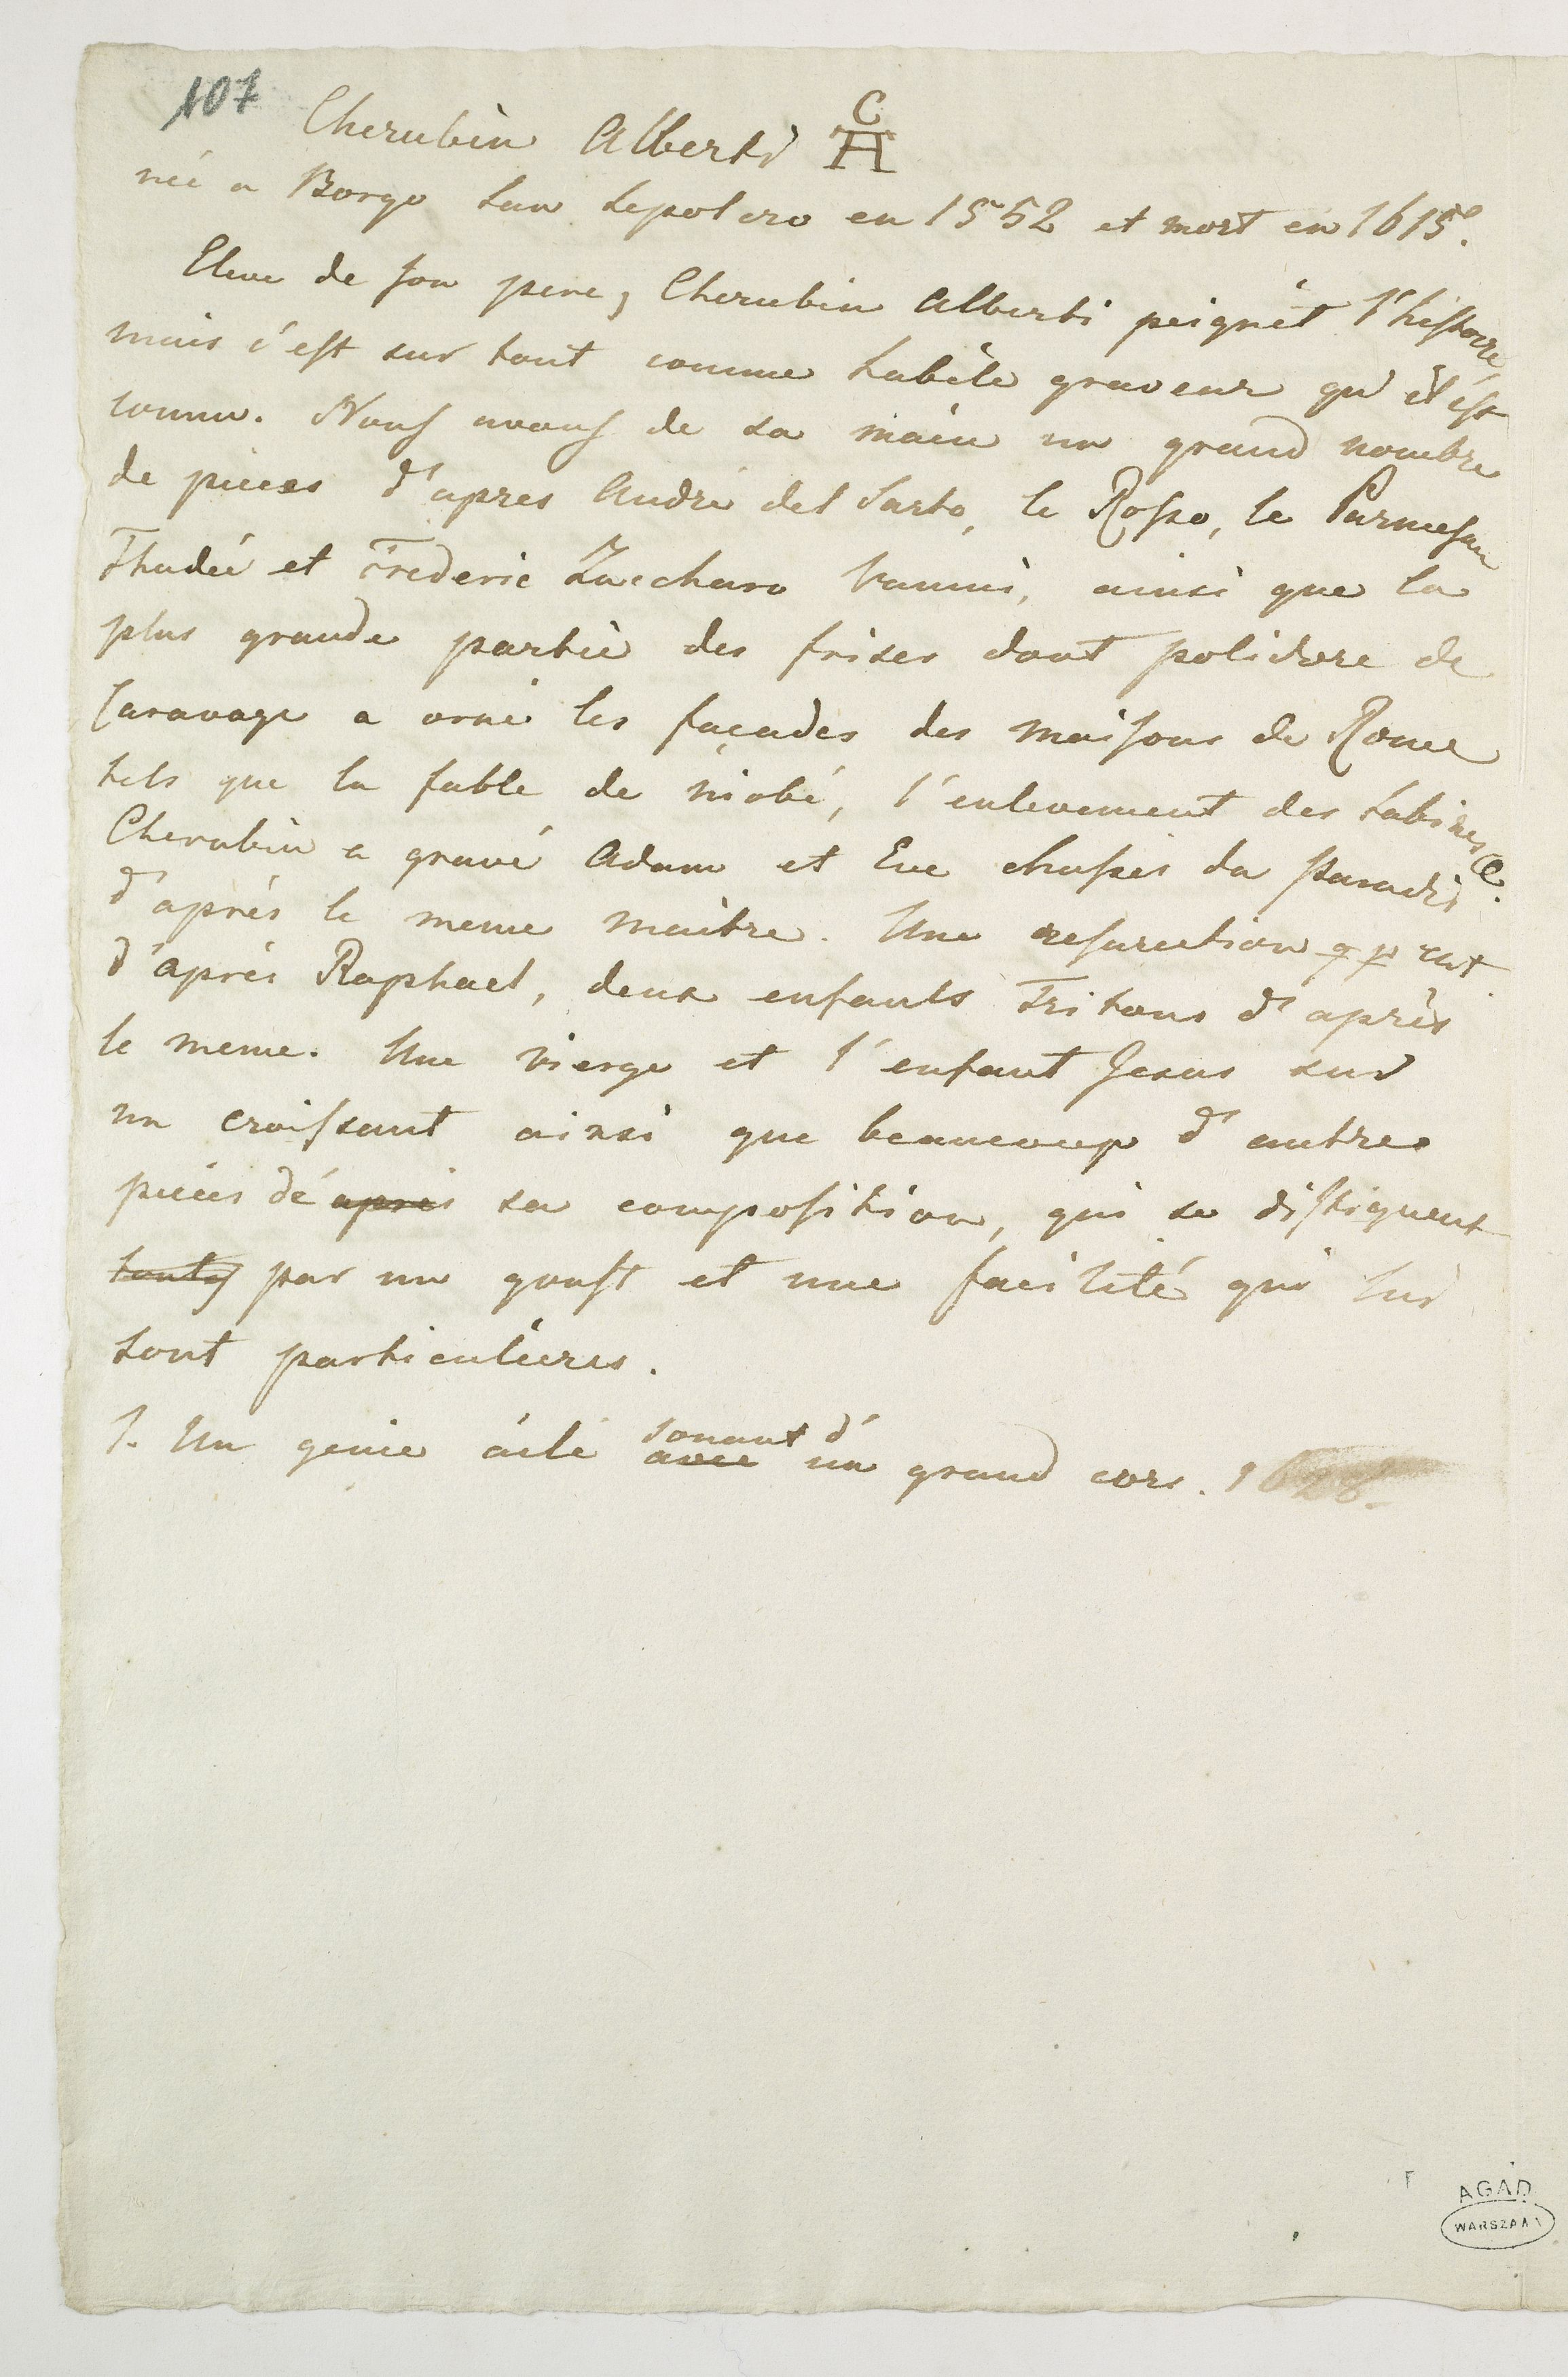 107
Cherubin Alberti C
A
née a Borgo San Sepolcro en 1552 et mort en 1615.
Eleve de son pere, Cherubin Alberti peignét l'histoire
mais c'est sur tout comme habile graveur qu'il est
connu. Nous avons de sa main un grand nombre
de pieces d'apres André del Sarto, le Rosso, le Parmesan
Thadée et Frederic Zucchara Vanni, ainsi que la
plus grande partie des frises dont polidore de
Caravage a orné les façades des maisons de Rome
tels que la fable de niobé, l'enlevement des Sabines
Cherubin a gravé Adam et Eve chassés da Paradis
d'aprés le meme maitre. Une resurection
d'aprés Raphael, deux enfants Tritons d'aprés
le meme. Une vierge et l'enfant Jesus sur
un croissant ainsi que beaucoup d'autres
pieces dé aprés sa composition, qui se distiguent
touts par un goust et une facilité qui lui
sont particulieres.
1. Un genie ailé avec sonant d' un grand cors.
AGAD
WARSZAWA